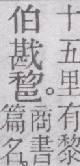 十五里有黎
伯戡。
商書
篇名